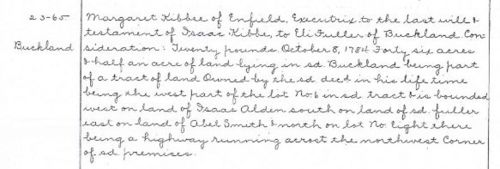 2-3-65 Margaret Kibbee of Enfield, Executrix to the last will &
Buckland testament of Isaac Kibbe, to Eli Fuller of Buckland Con
sideration: Twenty pounds October 8, 1784 Forty six acres
& half an acre of land lying in sd. Buckland being part
of a tract of land Owned by the sd decd in his life time
being the west part of the lot No 6 in sd tract & is bounded
west on land of Isaac Alden south on land of sd. fuller
east on land of Abel Smith & north on lot No. Eight there
being a highway running acrost the northwest Corner
of sd premises.